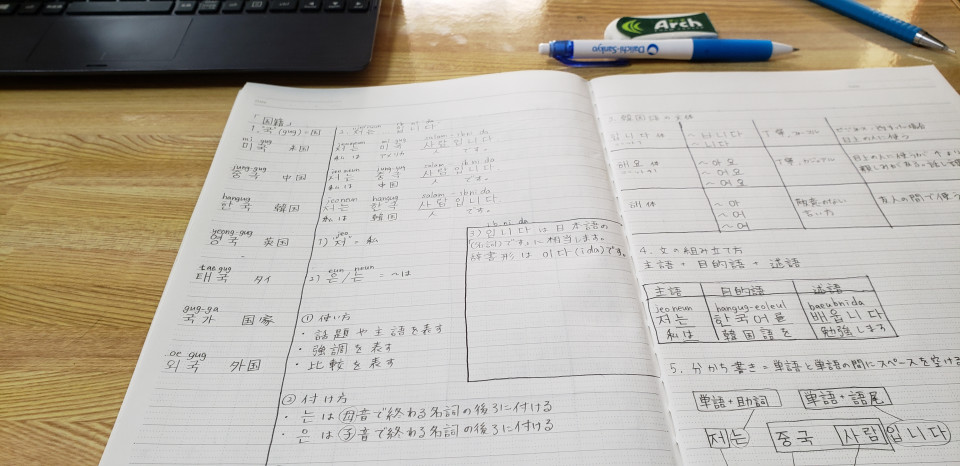 Arch
Daiichi-Sankyo
「国籍」
1. 국 (gug) = 国
mi gug
미국 米国
jung-gug
중국 中国
hangug
한국 韓国
yeong-gug
영국 英国
tae gug
태국 タイ
gug-ga
국가 国家
oe gug
외국 外国
2. 저는 입니다
jeoneun mi gug salam-ibni da
저는 미국 사람입니다
私は アメリカ 人 です。
jeoneun jung-gug salam ibni da
저는 중국 사람입니다
私は 中国 人 です。
jeoneun hangug salam-ibni da
저는 한국 사람입니다
私は 韓国 人 です。
jeo
1) 저 = 私
eun neun
2) 은/는 = ~は
① 使い方
・話題や主語を表す
・強調を表す
・比較を表す
② 付け方
・는 は母音で終わる名詞の後ろに付ける
・은 は子音で終わる名詞の後ろに付ける
ib ni da
3) 입니다 は日本語の
(名詞)です。に相当します。
辞書形は 이다 (ida)です。
3. 韓国語の文体
입니다 体
~ㅂ니다
~니다
해요 体
~아요
~어요
~여요
丁寧、カジュアル
해体
~아
~어
~여
友人の間で使う
4. 文の組み立て方
主語 + 目的語 + 述語
主語 目的語 述語
jeoneun hangug-eoleul baeubnida
저는 한국어를 배웁니다
私は 韓国語を 勉強します
5. 分かち書き = 単語と単語の間にスペースを空ける
単語+助詞 単語+語尾
저는 중국 사람입니다